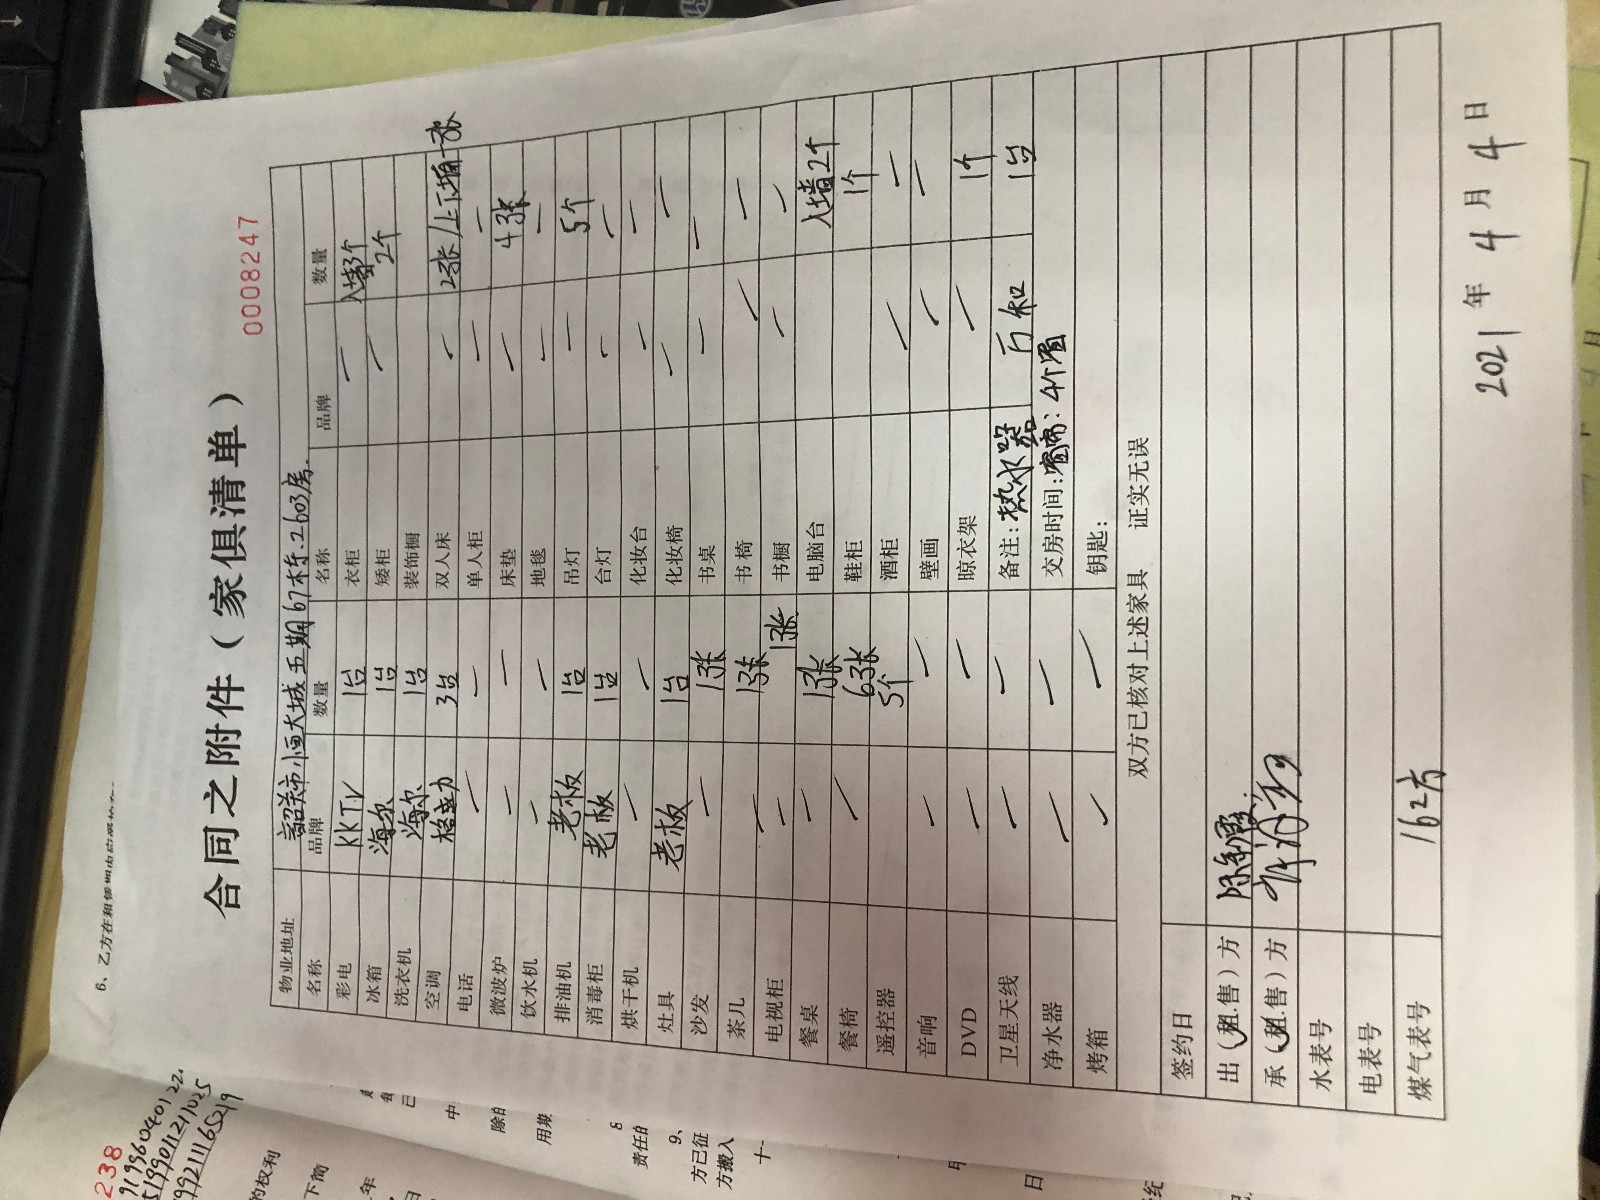 合同之附件（家俱清单）
0008247
物业地址 韶关市恒大城五期67栋2603房.
名称 品牌 数量 名称 品牌 数量
彩电 KKTV 1台 衣柜 — 入墙3个
冰箱 海尔 1台 矮柜 — 2个
洗衣机 海尔 1台 装饰橱
空调 格力 3台 双人床 — 2张/上下铺一张
电话 — — 单人柜 — —
微波炉 — — 床垫 — 4张
饮水机 — — 地毯 — —
排油机 老板 1台 吊灯 — 5个
消毒柜 老板 1台 台灯 — —
烘干机 — — 化妆台 — —
灶具 老板 1台 化妆椅 — —
沙发 — 1张 书桌 — —
茶几 1张 书椅 — —
电视柜 — 1张 书橱 — —
餐桌 — 1张 电脑台
餐椅 — 6张 鞋柜 入墙2个 1个
遥控器 5个 酒柜 — —
音响 — — 壁画 — —
DVD — — 晾衣架 — 1个
卫星天线 — — 备注：热水器 万和 1台
净水器 — — 交房时间：窗帘：4个眉
烤箱 — — 钥匙：
双方已核对上述家具 证实无误
签约日
出（租.售）方
承（租.售）方
水表号
电表号
煤气表号 162方
2021年4月4日
6、乙方在租赁期内应
238
的权利
下简
年
中
除的
用期
8
责任的
9、
方已征
方搬入
十
日